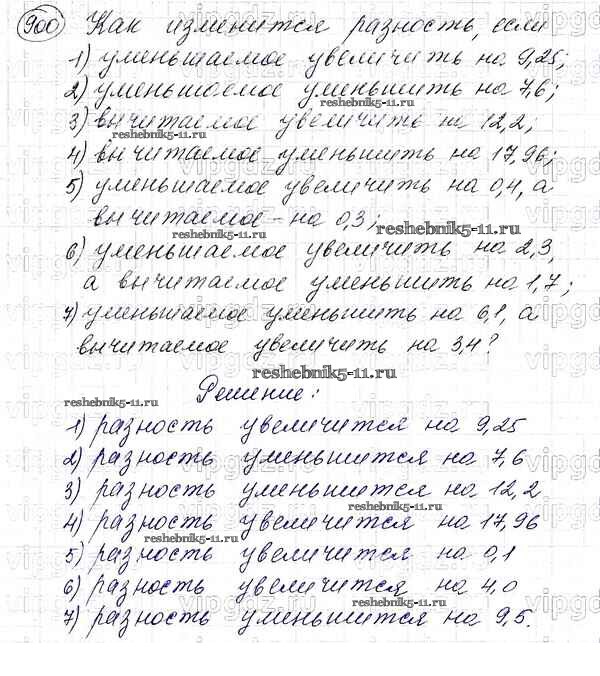 900 Как изменится разность, если
1) уменьшаемое увеличить на 9,25;
2) уменьшаемое уменьшить на 7,6;
reshebnik5-11.ru
3) вычитаемое увеличить на 12,2;
reshebnik5-11.ru
4) вычитаемое уменьшить на 17,96;
5) уменьшаемое увеличить на 0,4, а
вычитаемое - на 0,3;
reshebnik5-11.ru
6) уменьшаемое увеличить на 2,3,
а вычитаемое уменьшить на 1,7;
7) уменьшаемое уменьшить на 6,1, а
вычитаемое увеличить на 3,4?
reshebnik5-11.ru
Решение:
reshebnik5-11.ru
1) разность увеличится на 9,25
2) разность уменьшится на 7,6
3) разность уменьшится на 12,2
reshebnik5-11.ru
4) разность увеличится на 17,96
reshebnik5-11.ru
5) разность увеличится на 0,1
6) разность увеличится на 4,0
reshebnik5-11.ru
7) разность уменьшится на 9,5.